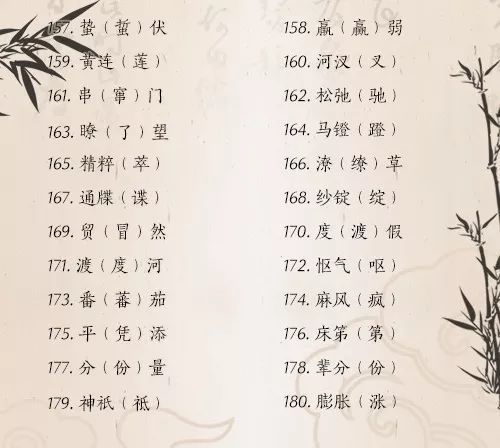 157. 蛰（蜇）伏 158. 羸（赢）弱
159. 黄连（莲） 160. 河汊（叉）
161. 串（窜）门 162. 松弛（驰）
163. 瞭（了）望 164. 马镫（蹬）
165. 精粹（萃） 166. 潦（缭）草
167. 通牒（谍） 168. 纱锭（绽）
169. 贸（冒）然 170. 度（渡）假
171. 渡（度）河 172. 怄气（呕）
173. 番（蕃）茄 174. 麻风（疯）
175. 平（凭）添 176. 床笫（第）
177. 分（份）量 178. 辈分（份）
179. 神祇（祗） 180. 膨胀（涨）